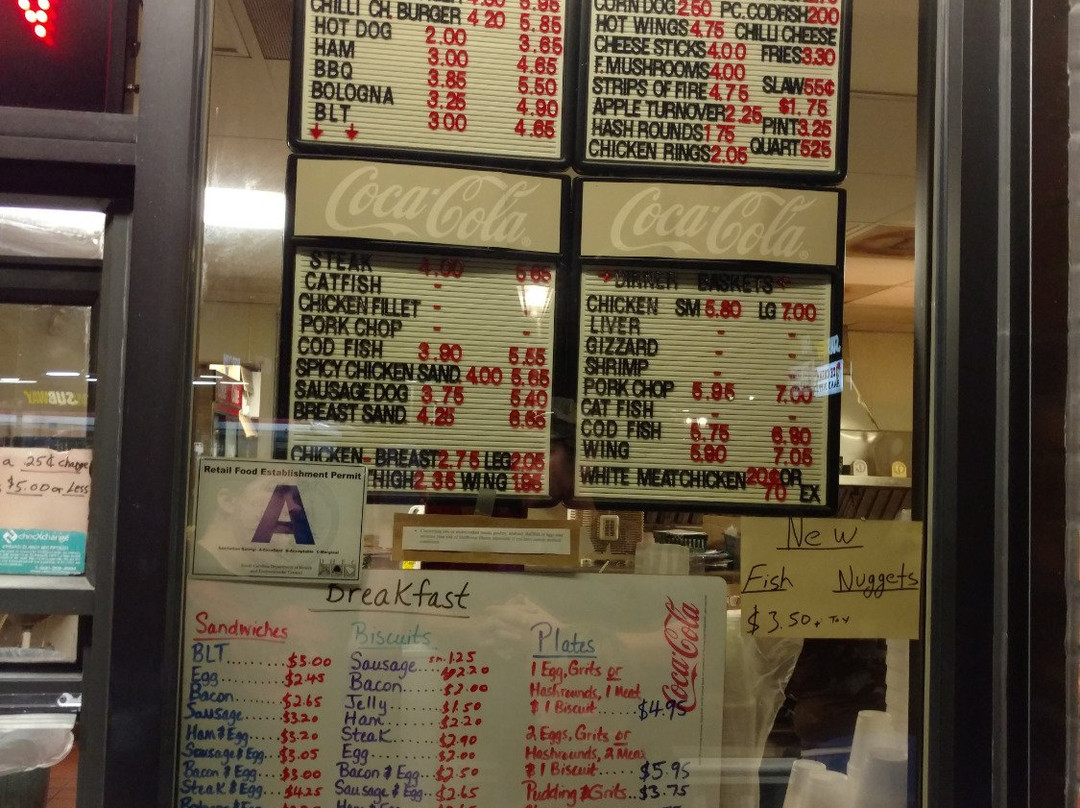 CHILLI CH. BURGER 4 20 5.85
HOT DOG 2.00 3.65
HAM 3.00 4.65
BBQ 3.85 5.50
BOLOGNA 3.25 4.90
BLT 3.00 4.65
CORN DOG 2.50 PC. CODFISH 200
HOT WINGS 4.75 CHILLI CHEESE
CHEESE STICKS 4.00 FRIES 3.30
F.MUSHROOMS 4.00
STRIPS OF FIRE 4.75 SLAW 55¢
APPLE TURNOVER 2.25 $1.75
HASH ROUNDS 1 75 PINT 3.25
CHICKEN RINGS 2.05 QUART 525
Coca-Cola
Coca-Cola
STEAK 4.00 5 65
CATFISH -
CHICKEN FILLET -
PORK CHOP -
COD FISH 3.90 5.55
SPICY CHICKEN SAND. 4.00 5.65
SAUSAGE DOG 3.75 5.40
BREAST SAND. 4.25 6.65
CHICKEN- BREAST 2.75 LEG 2.05
THIGH 2.35 WING 1.95
DINNER BASKETS
CHICKEN SM 5.80 LG 7.00
LIVER - -
GIZZARD - -
SHRIMP - -
PORK CHOP 5.95 7.00
CAT FISH - -
COD FISH 5.75 6.80
WING 5.90 7.05
WHITE MEAT CHICKEN 20¢ OR
70 EX
SUBWAY
a 25¢ charge
$5.00 or Less
Retail Food Establishment Permit
A
Breakfast
Sandwiches
BLT........$3.00
Egg.......$2.45
Bacon.....$2.65
Sausage....$3.20
Ham & Egg...$3.20
Sausage & Egg..$3.05
Bacon & Egg...$3.00
Steak & Egg...$4.25
Biscuits
Sausage... sm. 1.25
2.20
Bacon....$2.00
Jelly....$1.50
Ham....$2.20
Steak....$2.90
Egg....$2.00
Bacon & Egg..$2.50
Sausage & Egg..$2.65
Plates
1 Egg, Grits or
Hashrounds, 1 Meat
& 1 Biscuit....$4.95
2 Eggs, Grits or
Hashrounds, 2 Meat
& 1 Biscuit....$5.95
Pudding & Grits..$3.75
Coca-Cola
New
Fish Nuggets
$3.50 + Tax